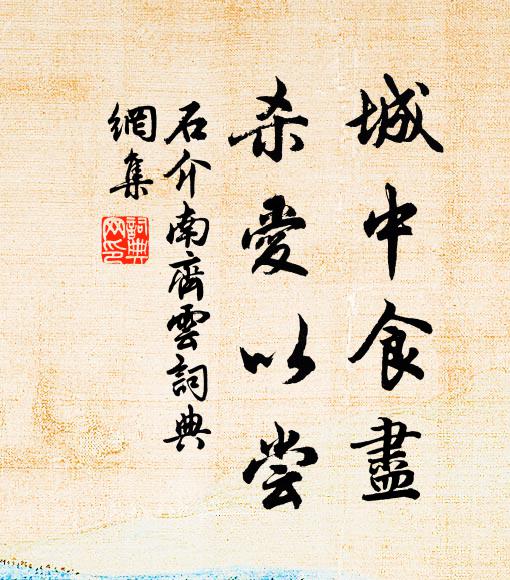 城中食盡
杀愛以尝
石介南齊雲詞典
網集
詞典
网印